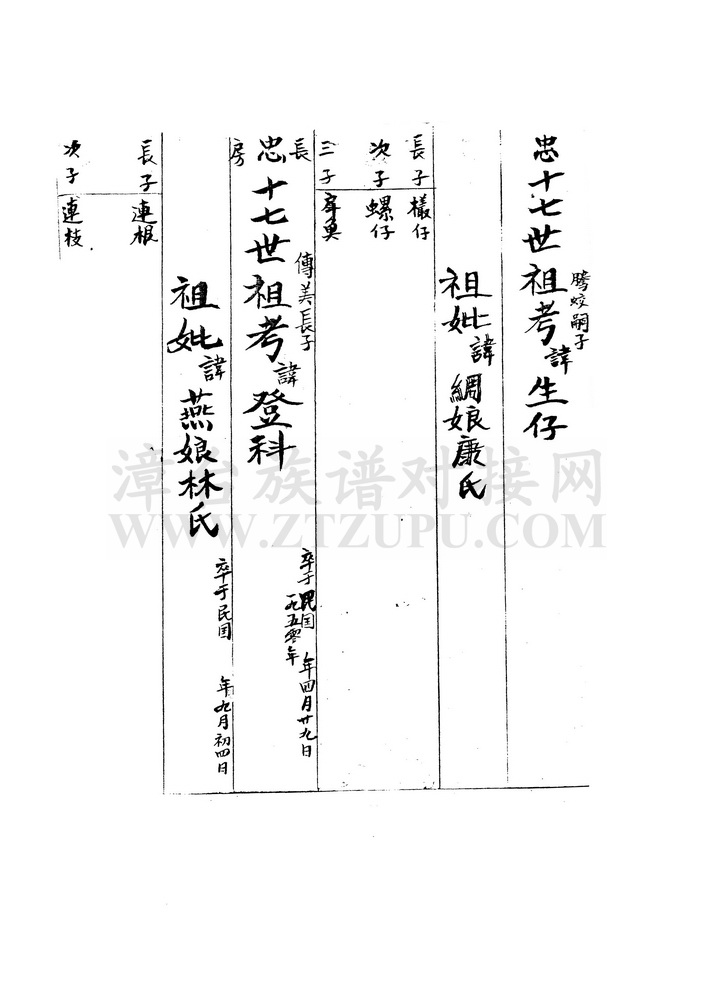 忠十七世祖考諱生仔
騰蛟嗣子
祖妣諱綢娘康氏
長子樣仔
次子螺仔
三子
長房
忠十七世祖考諱登科
傳美長子
卒于民国 年四月廿九日
一九五零年
祖妣諱燕娘林氏
卒于民国 年九月初四日
長子連根
次子連枝
漳台族谱对接网
WWW.ZTZUPU.COM